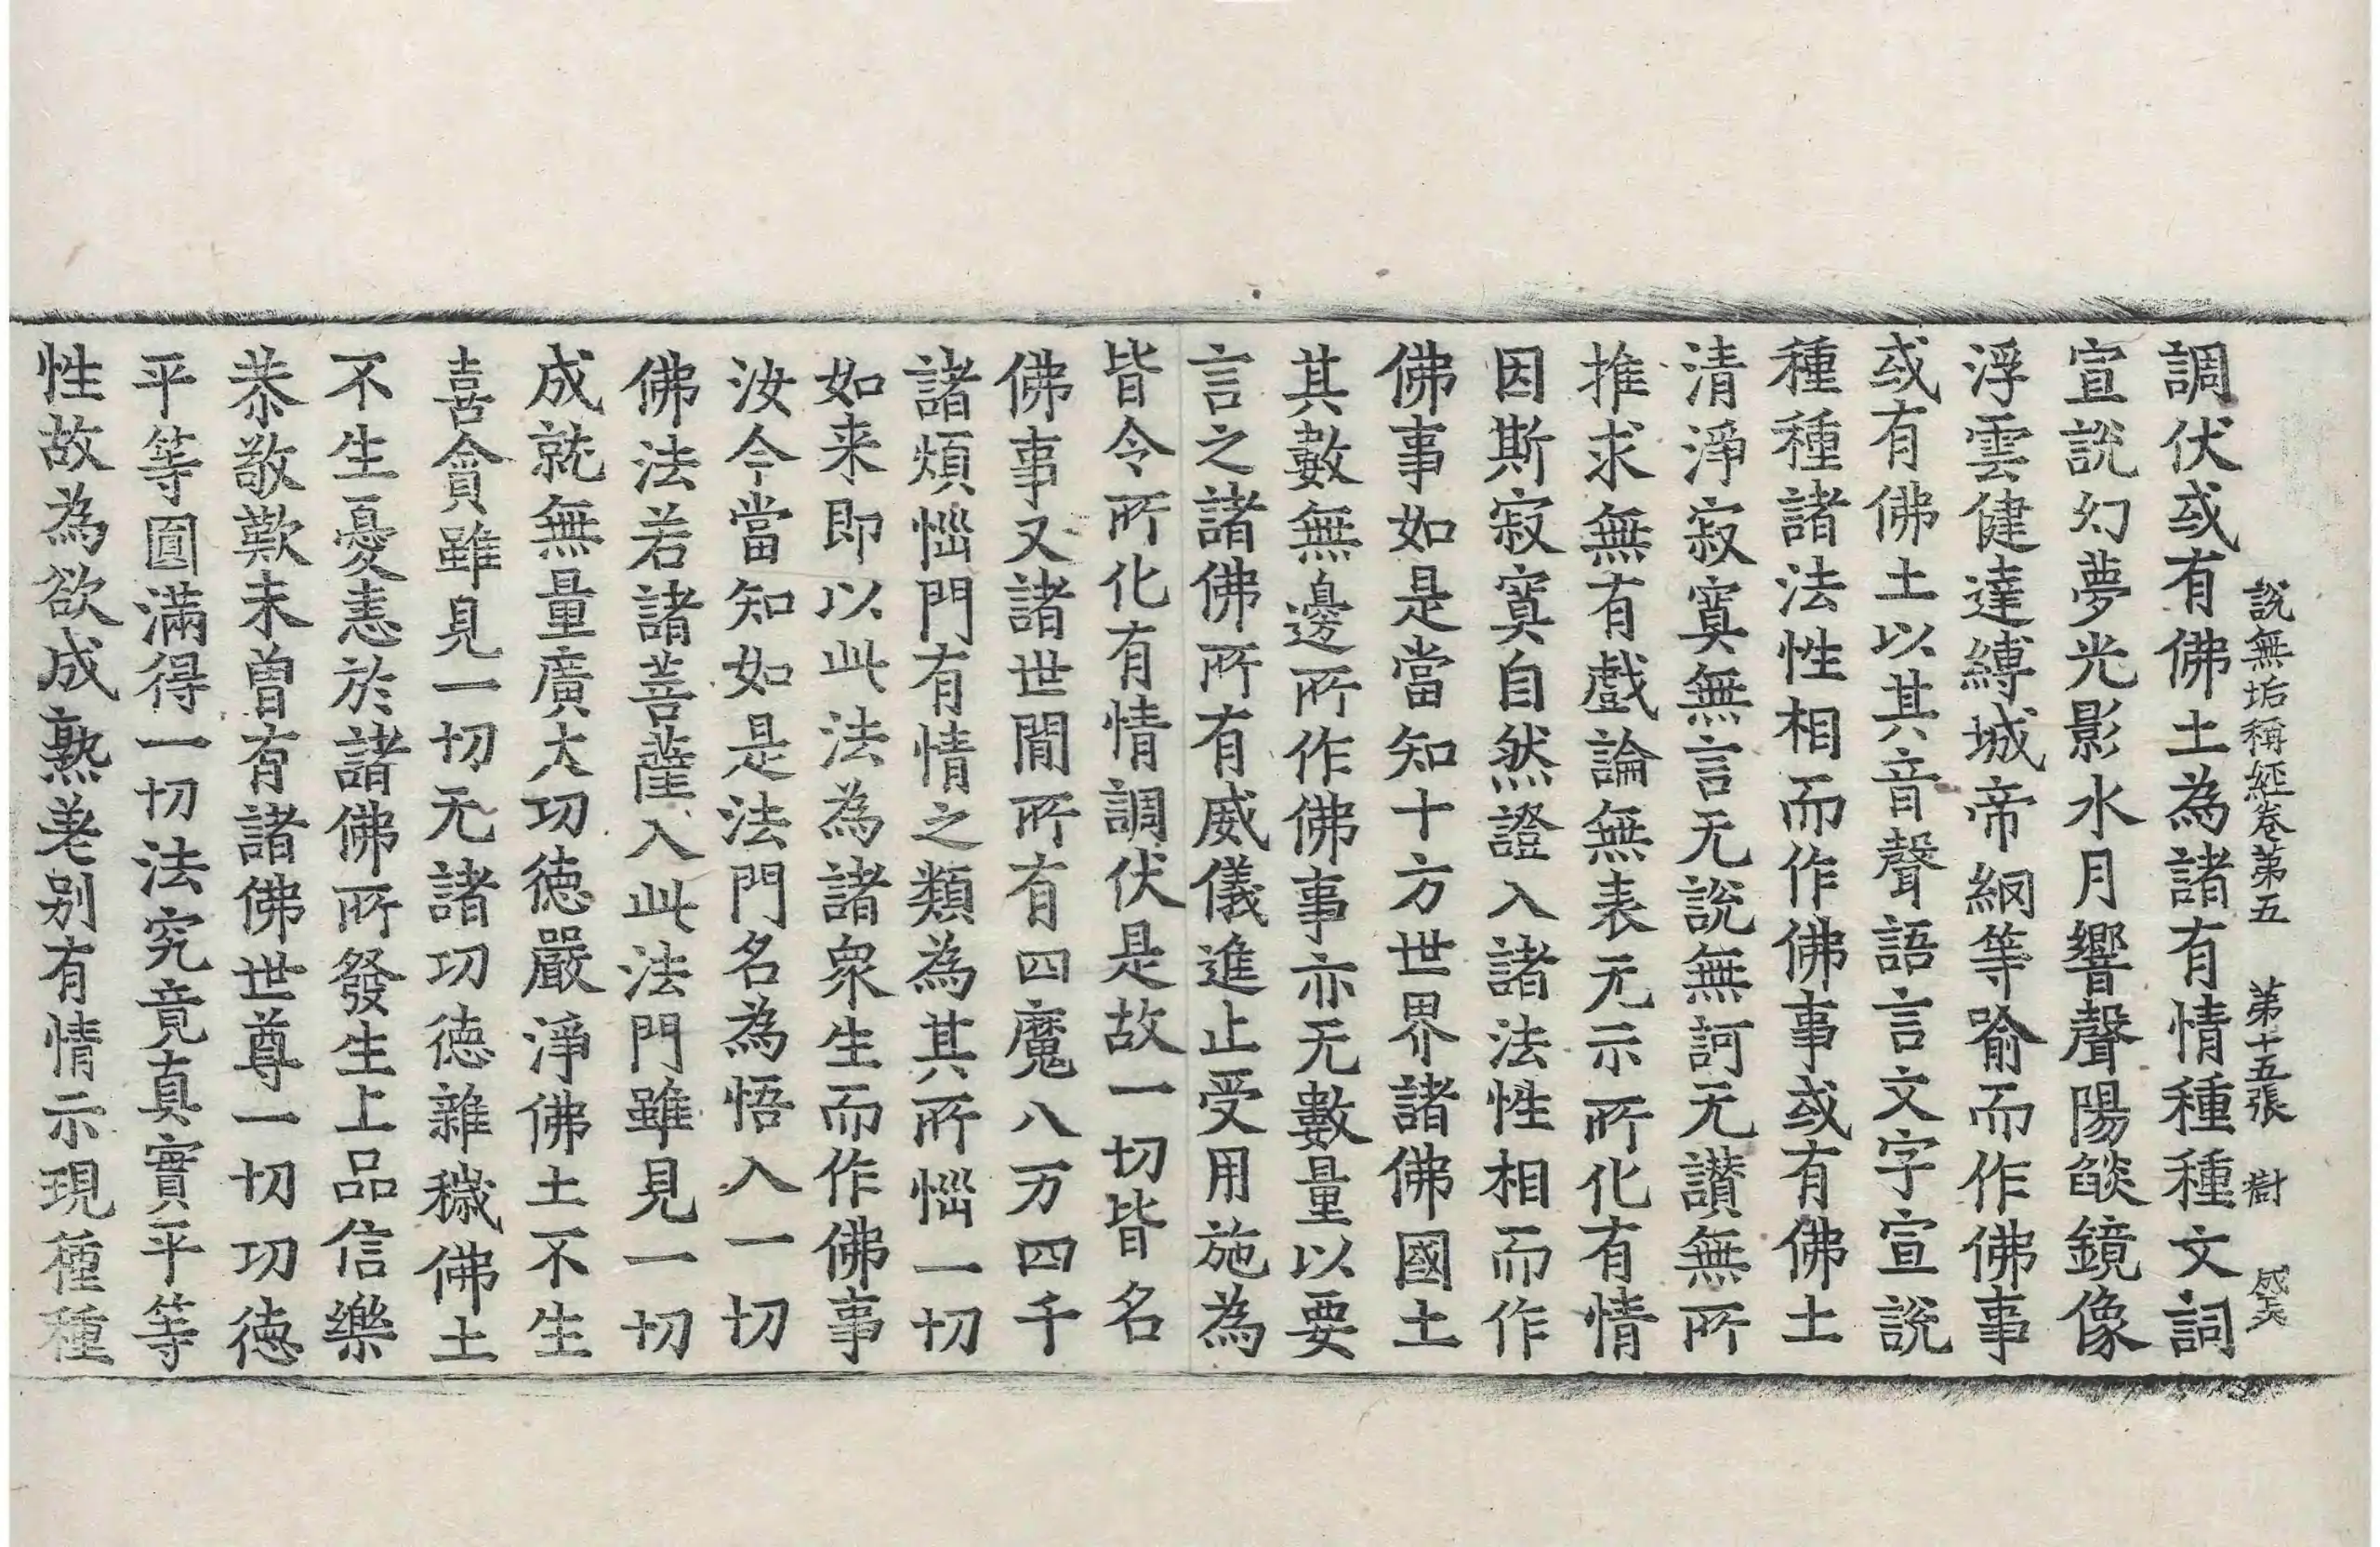 說無垢稱經卷第五　第十五張　樹
調伏或有佛土為諸有情種種文詞
宣說幻夢光影水月響聲陽燄鏡像
浮雲健達縛城帝網等喻而作佛事
或有佛土以其音聲語言文字宣說
種種諸法性相而作佛事或有佛土
清淨寂寞無言无說無訶无讃無所
推求無有戲論無表无示所化有情
因斯寂寞自然證入諸法性相而作
佛事如是當知十方世界諸佛國土
其數無邊所作佛事亦无數量以要
言之諸佛所有威儀進止受用施為
皆令所化有情調伏是故一切皆名
佛事又諸世間所有四魔八万四千
諸煩惱門有情之類為其所惱一切
如来即以此法為諸衆生而作佛事
汝今當知如是法門名為悟入一切
佛法若諸菩薩入此法門雖見一切
成就無量廣大功德嚴淨佛土不生
喜貪雖見一切无諸功德雜穢佛土
不生憂恚於諸佛所發生上品信樂
恭敬歎未曾有諸佛世尊一切功德
平等圓滿得一切法究竟真實平等
性故為欲成熟差別有情示現種種